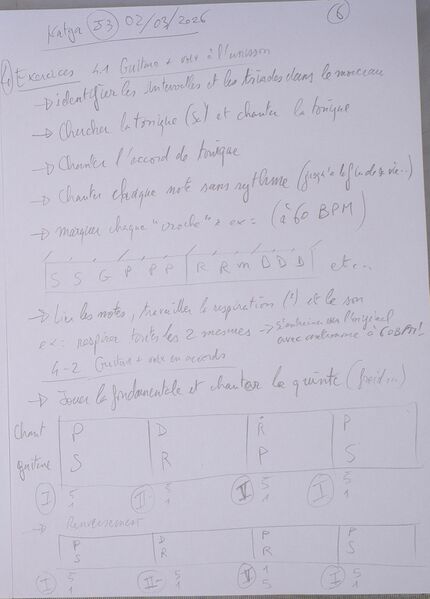 Katya J3 02/03/2026
6
4) Exercices 4.1 Guitare + voix à l'unisson
→ identifier les intervalles et les triades dans le morceau
→ Chercher la tonique (S) et chanter la tonique
→ Chanter l'accord de tonique
→ Chanter chaque note sans rythme
→ marquer chaque "croche" ex: (à 60 BPM)
S S G P P P R R m D D D etc...
→ Lier les notes, travailler la respiration (') et le son
ex: respirer toutes les 2 mesures → s'entraîner sur l'original
avec à 60BPM!
4-2 Guitare + voix en accords
→ Jouer la fondamentale et chanter la quinte
Chant P D R P
guitare S R P S
I 5 1 II 5 1 V 5 1 I 5 1
→ Renversement
P D P P
S R R S
I 5 1 II- 5 1 V 1 5 I 5 1